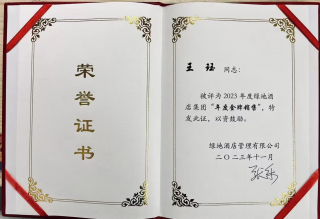 荣
誉
证
书
王 珏 同志：
被评为2023年度绿地酒
店集团“年度金牌销售”，特
发此证，以资鼓励。
绿地酒店管理有限公司
二〇二三年十一月